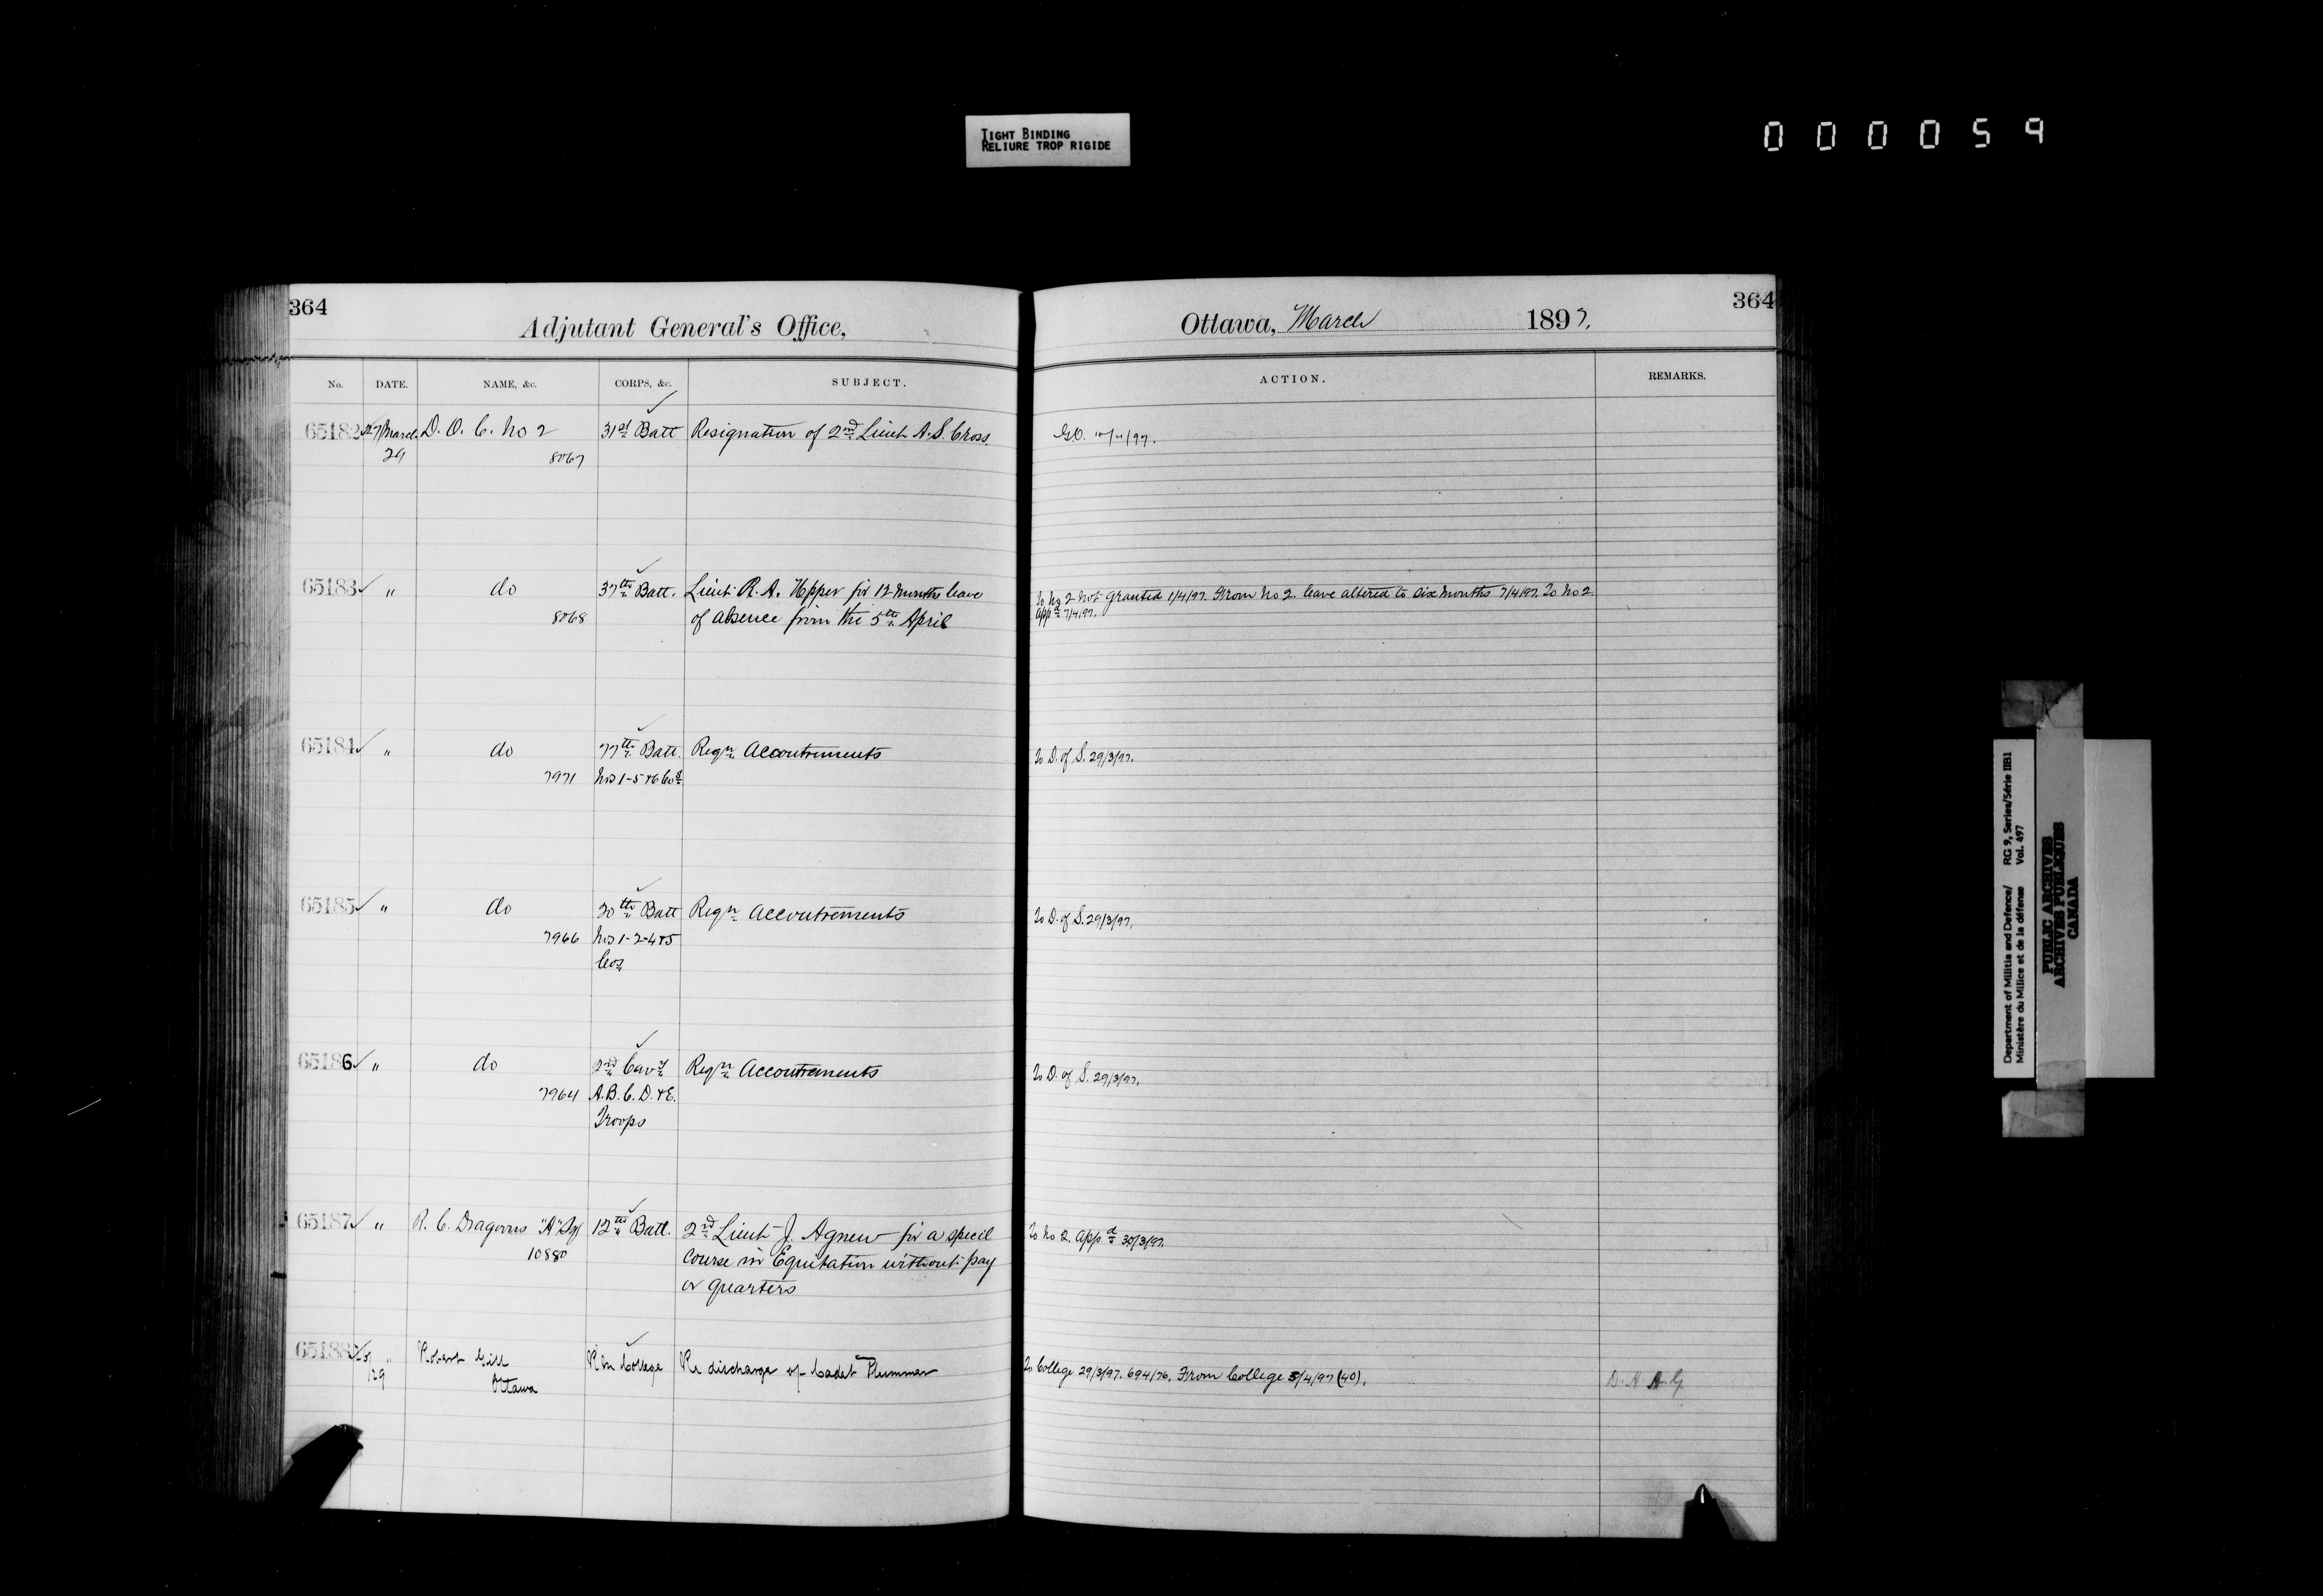 TIGHT BINDING
RELIURE TROP RIGIDE
000059
364
Adjutant General's Office,
No. DATE. NAME, &c. CORPS, &c. SUBJECT.
65182 27/March D. O. C. No 2 31st Batt Resignation of 2nd Lieut A. S. Cross.
29 8067
65183 " do 37th Batt. Lieut R. A. Hopper for 12 months leave
8068 of absence from the 5th April
65184 " do 77th Batt. Reqn Accoutrements
7971 Nos 1-5 & 6 Cos
65185 " do 20th Batt Reqn Accoutrements
7966 Nos 1-2-4 & 5
Cos
65186 " do 2nd Cavy Reqn Accoutrements
7964 A. B. C. D. & E.
Troops
65187 " R. C. Dragoons "A" Sq 12th Batt. 2nd Lieut J. Agnew for a specil
10880 course in Equitation without pay
or quarters
65188 " Robert Gill Rm College Re discharge of Cadet Plummer
29 Ottawa
364
Ottawa, March 1897.
ACTION. REMARKS.
G.O. /97.
To No 2 not granted 1/4/97. From No 2. leave altered to six months 7/4/97. To No 2
appd 7/4/97.
To D. of S. 29/3/97.
To D. of S. 29/3/97.
To D. of S. 29/3/97.
To No 2. appd 30/3/97.
To College 29/3/97. 694/76. From College 5/4/97 (40). D. A. A. G.
Department of Militia and Defence/ RG 9, Series/Série IIB1
Ministère du Milice et de la défense Vol. 497
PUBLIC ARCHIVES
ARCHIVES PUBLIQUES
CANADA